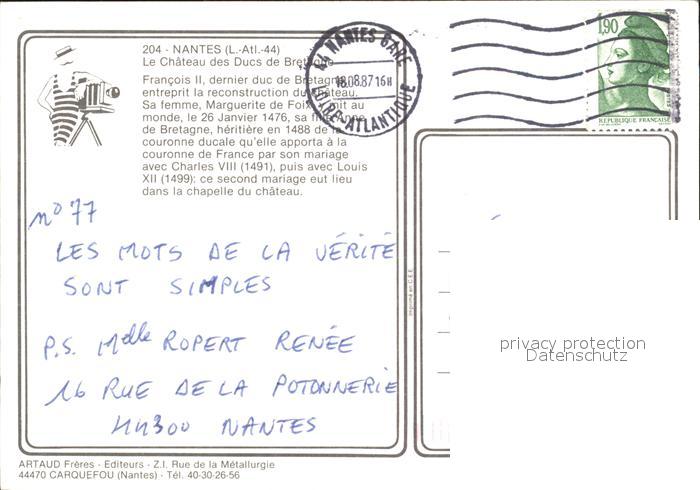 204 - NANTES (L.-Atl.-44)
Le Château des Ducs de Bretagne
François II, dernier duc de Bretagne,
entreprit la reconstruction du château.
Sa femme, Marguerite de Foix, mit au
monde, le 26 Janvier 1476, sa fille Anne
de Bretagne, héritière en 1488 de la
couronne ducale qu'elle apporta à la
couronne de France par son mariage
avec Charles VIII (1491), puis avec Louis
XII (1499): ce second mariage eut lieu
dans la chapelle du château.
44 NANTES GARE
18.08.87 16H
LOIRE-ATLANTIQUE
1,90
REPUBLIQUE FRANÇAISE
n° 77
LES MOTS DE LA VÉRITÉ
SONT SIMPLES
P.S. Mdlle ROPERT RENÉE
16 RUE DE LA POTONNERIE
44300 NANTES
Imprimé en C.E.E.
privacy protection
Datenschutz
ARTAUD Frères - Editeurs - Z.I. Rue de la Métallurgie
44470 CARQUEFOU (Nantes) - Tél. 40-30-26-56